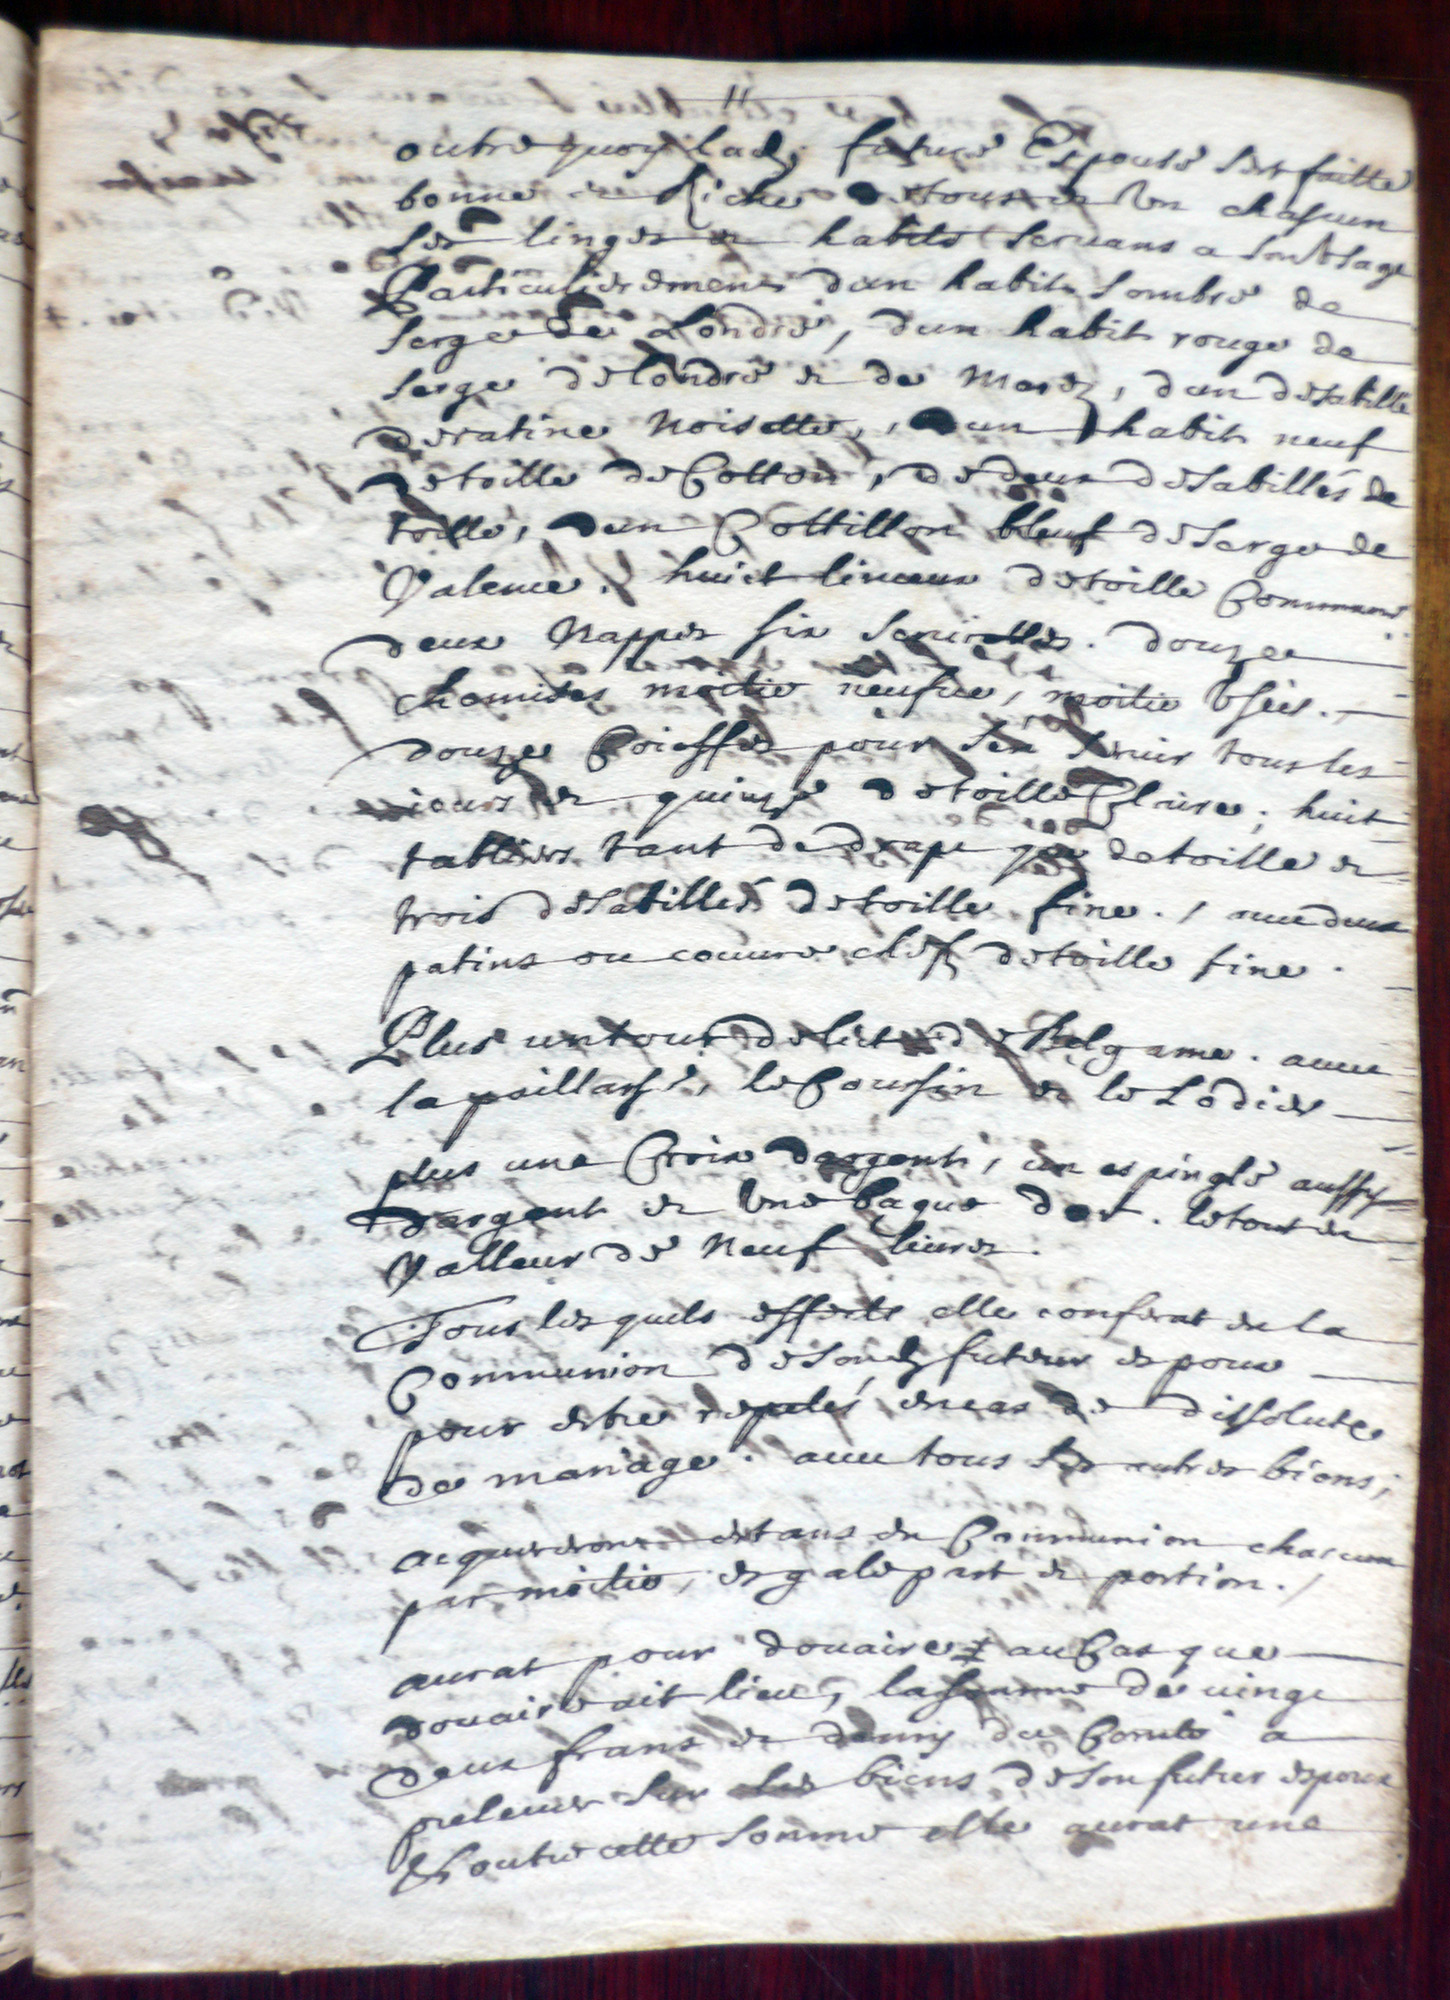 11
outre quoy lad. future Espouse s'est faitte
bonne et Riche de tous et un chascun
ses linges et habits seruans a son Vsage
Particulierement d'un habit sombre de
serge de Londre, d'un habit rouge de
serge de londre et de Morez, d'un desabillé
de ratine Noisette, d'un habit neuf
de toille de Cotton, de deux desabillés de
toille, d'un Cottillon bleuf de serge de
Valence, huict linceux de toille Commune
deux Nappes six seruiettes. douze
chemises moitie neufue, moitie Vsées.
douze Coieffes pour s'en seruir tous les
iours et quinze de toille Claire; huit
tabliers tant de drape que de toille et
trois desabillés de toille fine. / deux
patins ou couure chefz de toille fine.
Plus un tour de lict de Belgame. auec
la paillasse, le Coussin et le Lodier
plus une Croix d'argent, un espingle aussy
d'argent et Une bague d'or. le tout en
Valleur de Neuf liures.
Tous lesquels effects elle conferat en la
Communion de son d. futeur espoux
pour estre repetés en cas de dissolute
de mariage. auec tous les autres biens,
acquereront estans en Communion chascun
par moitie, esgale part et portion. /
aurat pour douaire au Cas que
douaire ait lieu, la somme de uingt
deux frans et demy du Comté a
preleuer sur les biens de son futur espoux
Et outre cette somme elle aurat une